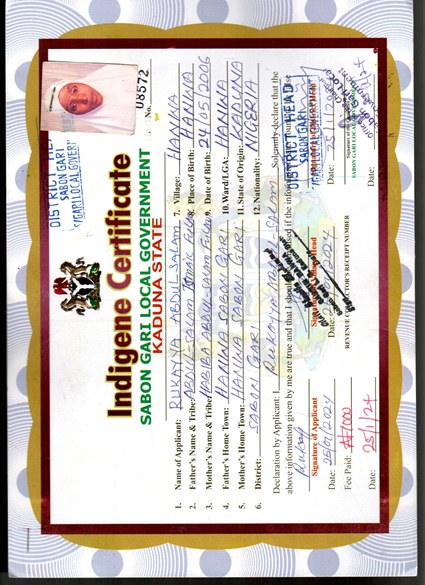 DISTRICT HEAD
SABON GARI
No. 08572
Indigene Certificate
SABON GARI LOCAL GOVERNMENT
KADUNA STATE
1. Name of Applicant: RUKAYYA ABDUL-SALAM 7. Village: HANWA
2. Father's Name & Tribe: ABDUL-SALAM 8. Place of Birth: HANWA
3. Mother's Name & Tribe: HABIBA ABDUL-SALAM 9. Date of Birth: 24/05/2006
4. Father's Home Town: HANWA SABON GARI 10. Ward/LGA: HANWA
5. Mother's Home Town: HANWA SABON GARI 11. State of Origin: KADUNA
6. District: SABON GARI 12. Nationality: NIGERIA
Declaration by Applicant: I RUKAYYA ABDUL SALAM Solemnly declare that the
above information given by me are true and that I should be if the information found
Signature of Applicant
Date: 25/01/2024
Fee Paid: ₦1000
REVENUE COLLECTOR'S RECEIPT NUMBER
Date: 25/1/24
DISTRICT HEAD
SABON GARI
SABON GARI LOCAL
Date: